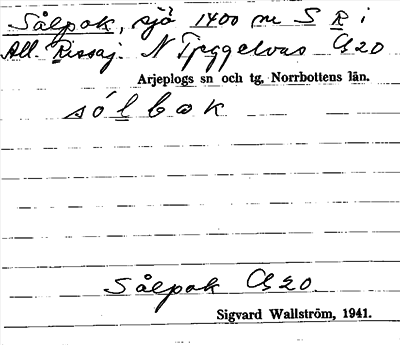 Sålpok, sjö 1400 m S R i
All. Rissaj. N Tjeggelvas Cs 20
Arjeplogs sn och tg, Norrbottens län.
sólbok
Sålpok Cs 20
Sigvard Wallström, 1941.